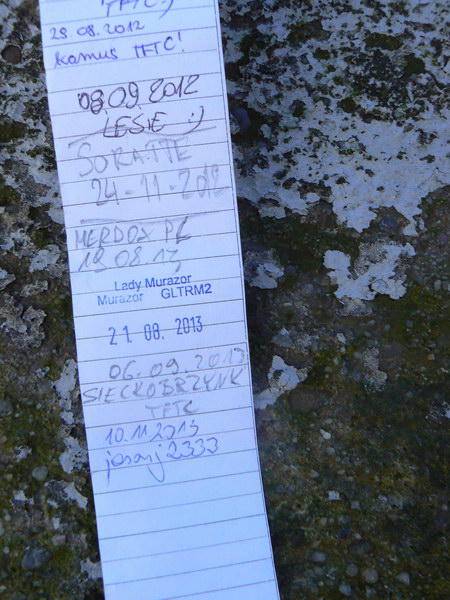 TFTC :)
29.08.2012
kamus TFTC!
08.09.2012
LESIE :)
SORATTE
24-11-2012
MERDOX PL
19.08.13,
Lady Murazor
Murazor GLTRM2
21 08. 2013
06.09.2013
SIECKOBRZYNK
TFTC
10.11.2013
jasonj2333